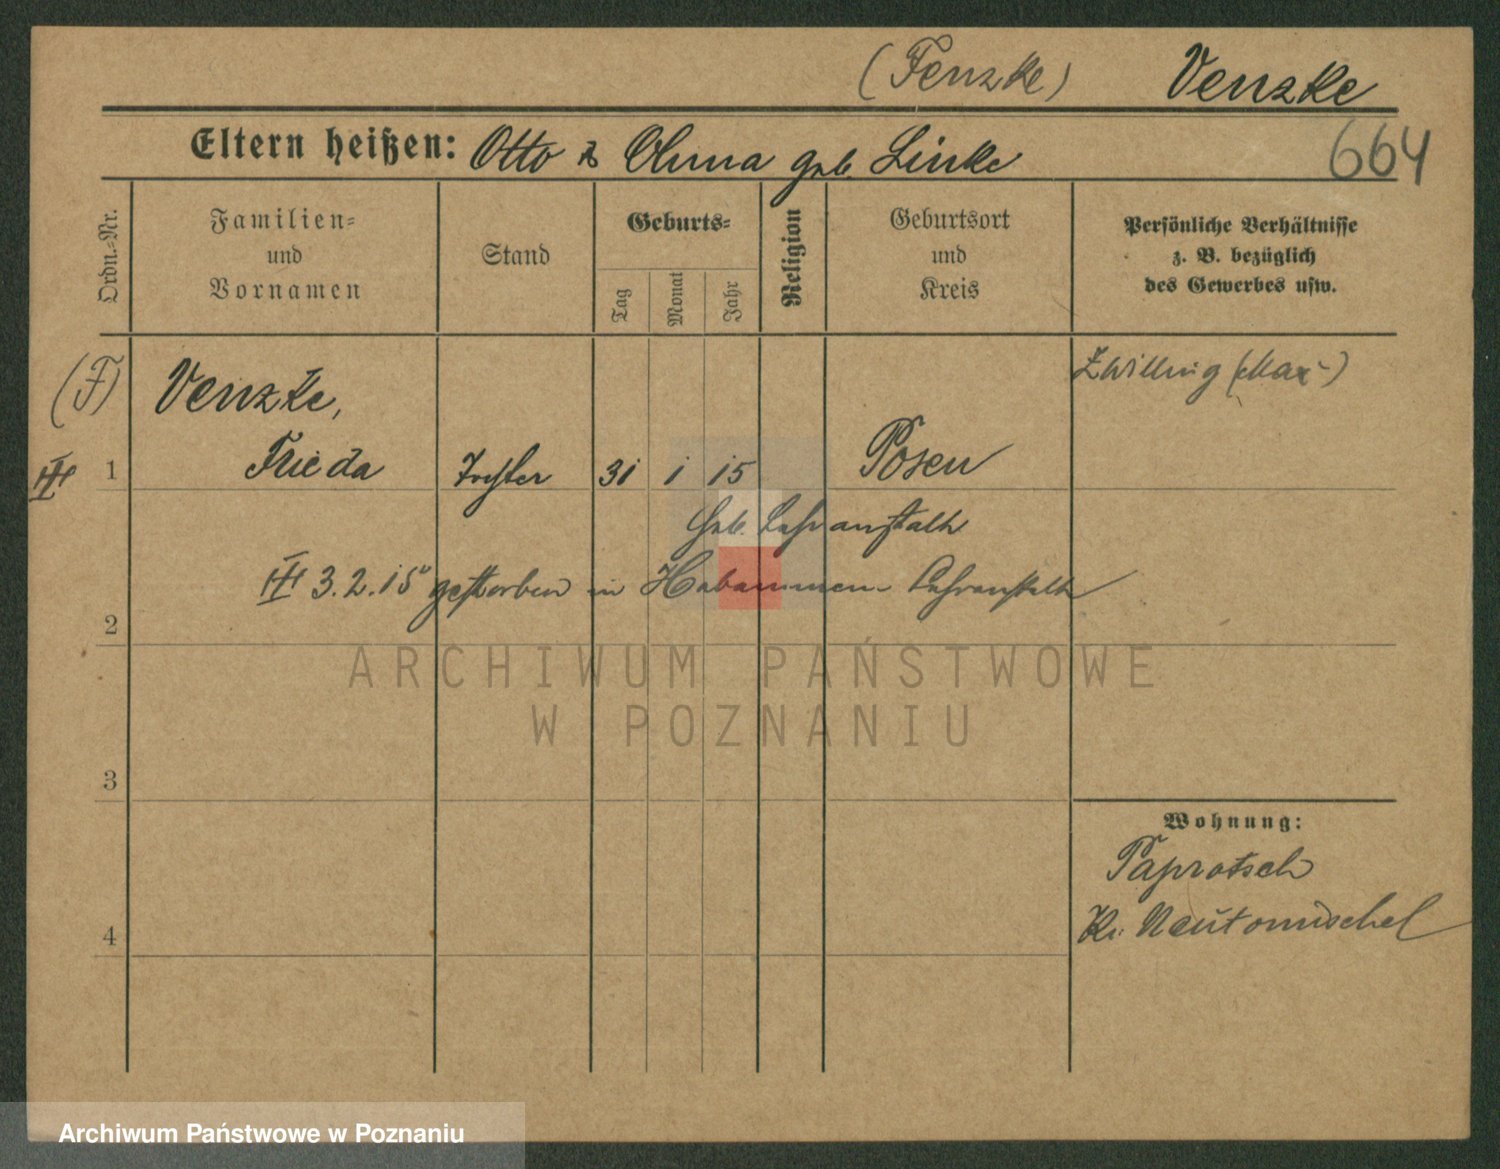 (Fenzke) Venzke
Eltern heißen: Otto & Anna geb. Linke
664
Ordn.-Nr.
Familien-
und
Vornamen
Stand
Geburts-
Tag
Monat
Jahr
Religion
Geburtsort
und
Kreis
Persönliche Verhältnisse
z. B. bezüglich
des Gewerbes usw.
(F) Venzke,
Zwilling (Max-)
1 Frieda Tochter 31 1 15 Posen
Heb. Lehranstalt
3.2.15 gestorben in Hebammen-Lehranstalt
2
ARCHIWUM PAŃSTWOWE
W POZNANIU
3
Wohnung:
Paprotsch
Kr. Neutomischel
4
Archiwum Państwowe w Poznaniu